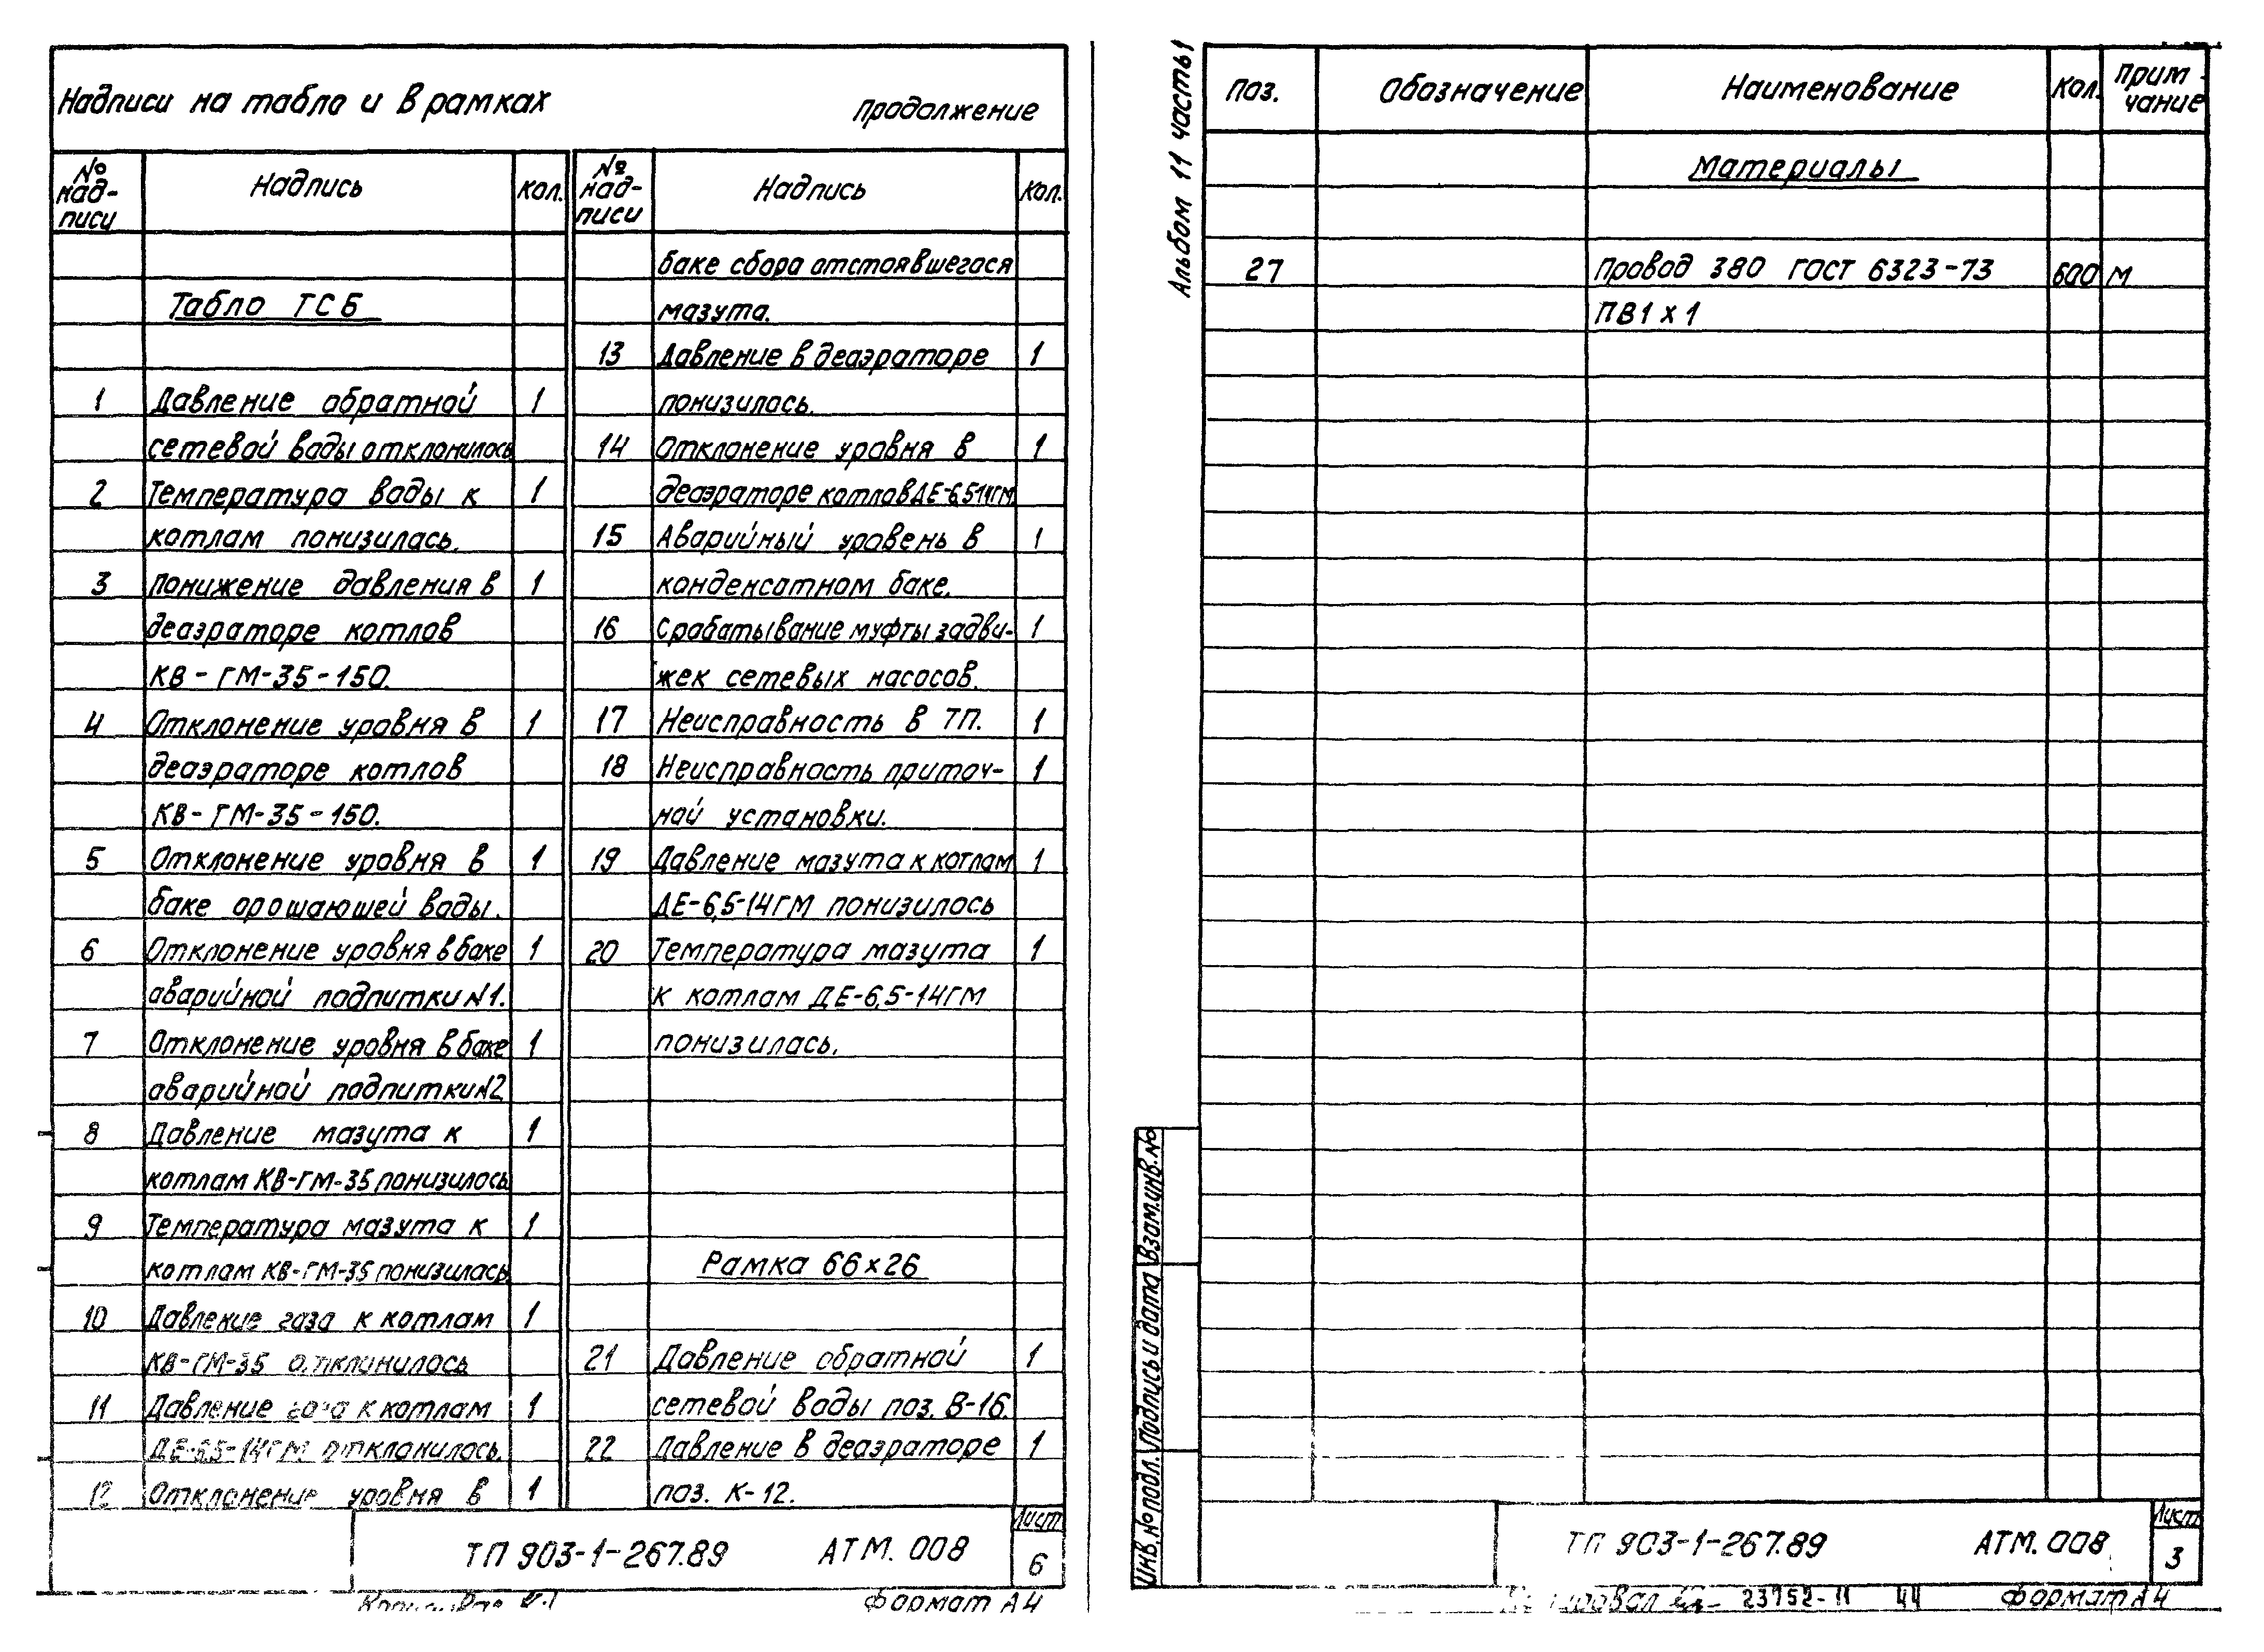 Надписи на табло и в рамках
Продолжение
№ над-писи Надпись кол. № над-писи Надпись кол.
Табло ТСБ
1 Давление обратной 1
сетевой воды отклонилось
2 Температура воды к 1
котлам понизилась.
3 Понижение давления в 1
деаэраторе котлов
КВ-ГМ-35-150.
4 Отклонение уровня в 1
деаэраторе котлов
КВ-ГМ-35-150.
5 Отклонение уровня в 1
баке орошающей воды.
6 Отклонение уровня в баке 1
аварийной подпитки N1.
7 Отклонение уровня в баке 1
аварийной подпитки N2
8 Давление мазута к 1
котлам КВ-ГМ-35 понизилось
9 Температура мазута к 1
котлам КВ-ГМ-35 понизилась
10 Давление газа к котлам 1
КВ-ГМ-35 отклонилось
11 Давление газа к котлам 1
ДЕ-6,5-14ГМ отклонилось.
12 Отклонение уровня в 1
баке сбора отстоявшегося
мазута.
13 Давление в деаэраторе 1
понизилось.
14 Отклонение уровня в 1
деаэраторе котлов ДЕ-6,5-14ГМ.
15 Аварийный уровень в 1
конденсатном баке.
16 Срабатывание муфты задви- 1
жек сетевых насосов.
17 Неисправность в ТП. 1
18 Неисправность приточ- 1
ной установки.
19 Давление мазута к котлам 1
ДЕ-6,5-14ГМ понизилось
20 Температура мазута 1
к котлам ДЕ-6,5-14ГМ
понизилась.
Рамка 66×26
21 Давление обратной 1
сетевой воды поз. В-16.
22 Давление в деаэраторе 1
поз. К-12.
ТП 903-1-267.89 АТМ. 008
Лист
6
Формат А4
Альбом 11 часть 1
Поз. Обозначение Наименование Кол. Прим-чание
Материалы
27 Провод 380 ГОСТ 6323-73 600 м
ПВ1×1
Инв. № подл. Подпись и дата Взам. инв. №
ТП 903-1-267.89 АТМ. 008
Лист
3
23752-11 44 Формат А4